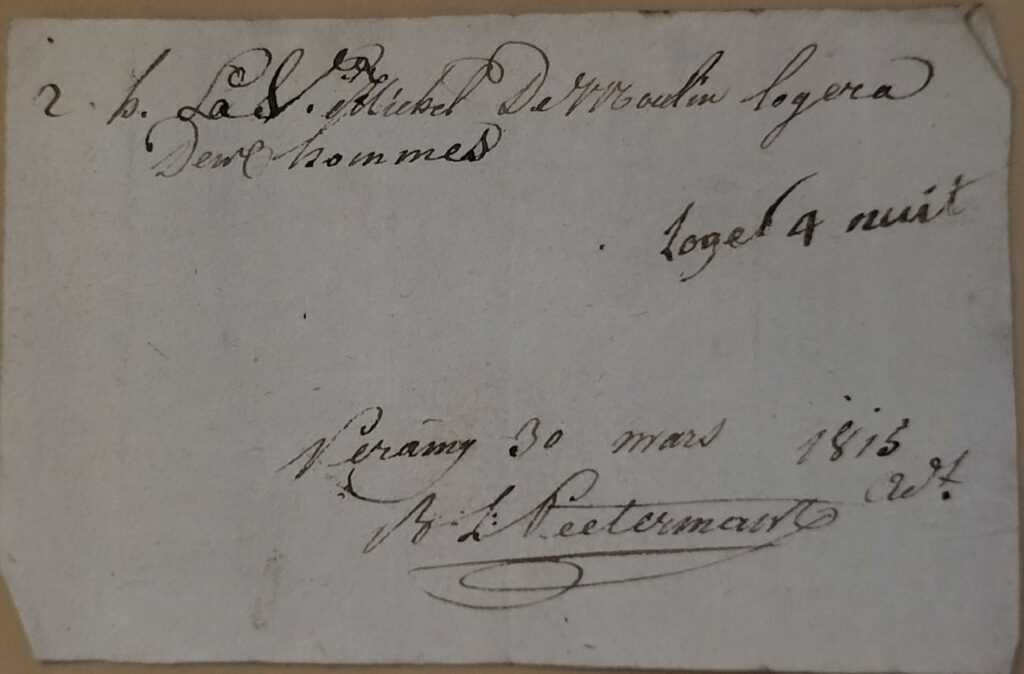 2. h. La V. Michel De Moulin logera
Deux hommes
Logel 4 nuit
Peramy 30 mars 1815
B: L: Peetermans Adt.